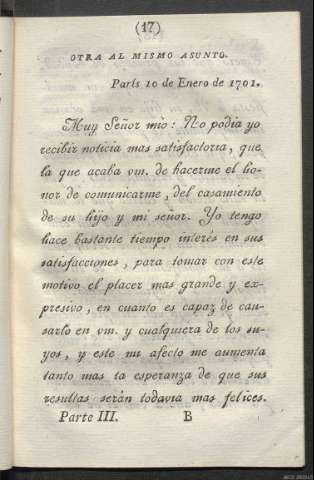 (17)
OTRA AL MISMO ASUNTO.
París 10 de Enero de 1701.
Muy Señor mio: No podia yo
recibir noticia mas satisfactoria, que
la que acaba vm. de hacerme el ho-
nor de comunicarme, del casamiento
de su hijo y mi señor. Yo tengo
hace bastante tiempo interés en sus
satisfacciones, para tomar con este
motivo el placer mas grande y ex-
presivo, en cuanto es capaz de cau-
sarlo en vm. y cualquiera de los su-
yos, y este mi afecto me aumenta
tanto mas la esperanza de que sus
resultas serán todavia mas felices.
Parte III. B